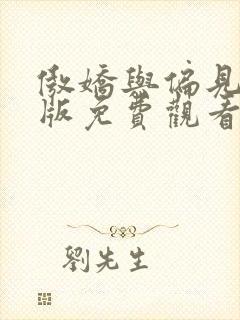 傲嬌與偏見
版免費觀看
劉先生